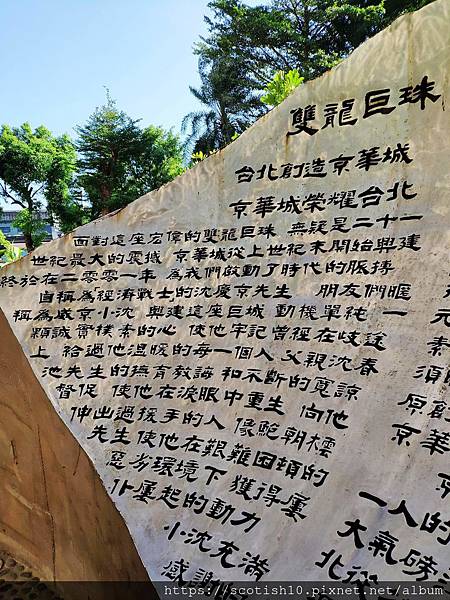 雙龍巨珠
台北創造京華城
京華城榮耀台北
面對這座宏偉的雙龍巨珠 無疑是二十一
世紀最大的震撼 京華城從上世紀末開始興建
終於在二零零一年 為我們啟動了時代的脈搏
自稱為經濟戰士的沈慶京先生 朋友們暱
稱為威京小沈 興建這座巨城 動機單純 一
顆誠實樸素的心 使他牢記曾經在歧途
上 給過他溫暖的每一個人 父親沈春
池先生的撫育教誨 和不斷的寬諒
督促 使他在淚眼中重生 向他
伸出過援手的人 像鮑朝橒
先生 使他在艱難困頓的
惡劣環境下 獲得屢
仆屢起的動力
小沈充滿
感謝
元
素
須
原創
京華
京
一人的
大氣磅
北從
https://scotish10.pixnet.net/album